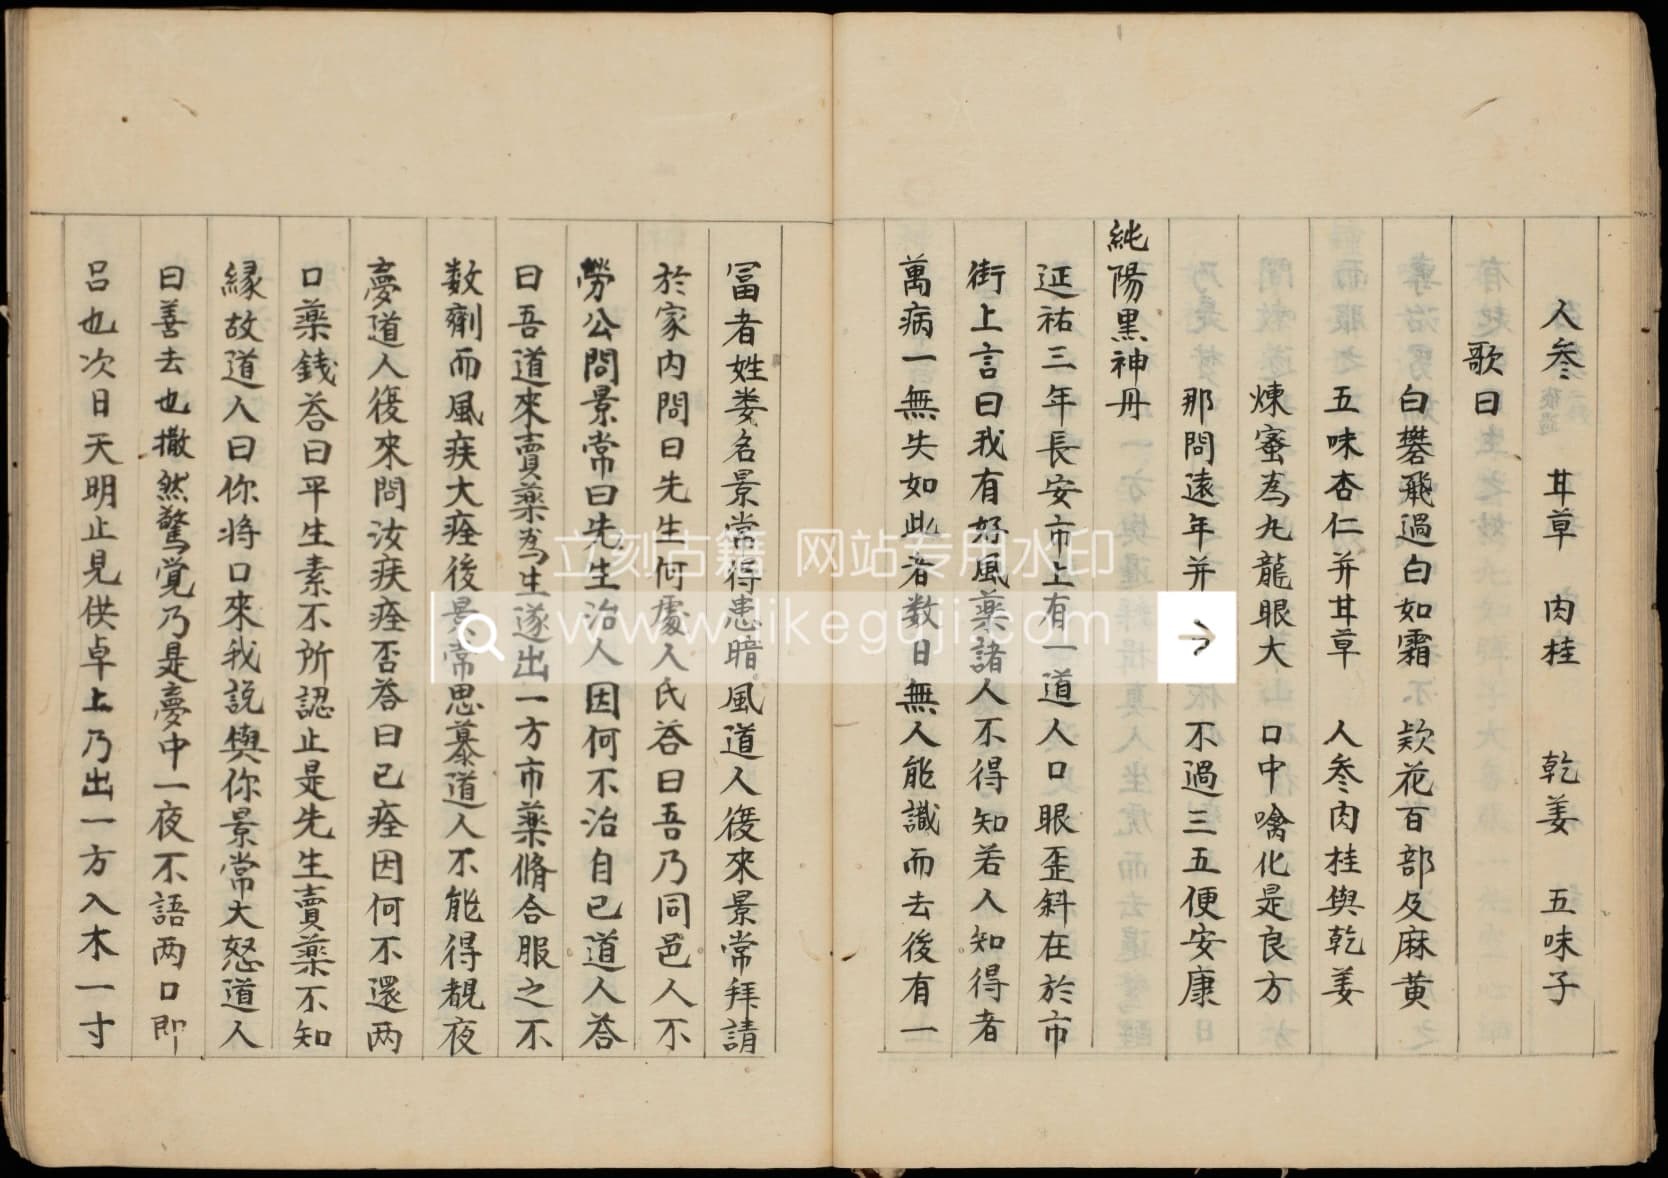 人参　甘草　肉桂　乾姜　五味子
歌曰
白礬飛過白如霜　欵花百部及麻黄
五味杏仁并甘草　人参肉桂與乾姜
煉蜜為丸龍眼大　口中噙化是良方
那問遠年并　不過三五便安康
純陽黒神丹
延祐三年長安市上有一道人口眼歪斜在於市
街上言曰我有好風藥諸人不得知若人知得者
萬病一無失如此者数日無人能識而去後有一
冨者姓娄名景常得患暗風道人復來景常拜請
於家内問曰先生何處人氏荅曰吾乃同邑人不
勞公問景常曰先生治人因何不治自己道人荅
曰吾道來賣藥為生遂出一方市藥脩合服之不
数劑而風疾大痊後景常思慕道人不能得覩夜
夢道人復來問汝疾痊否荅曰已痊因何不還两
口藥銭荅曰平生素不所認止是先生賣藥不知
縁故道人曰你将口來我説與你景常大怒道人
曰善去也撒然驚覚乃是夢中一夜不語两口即
呂也次日天明止見供卓上乃出一方入木一寸
立刻古籍 网站专用水印
www.likeguji.com